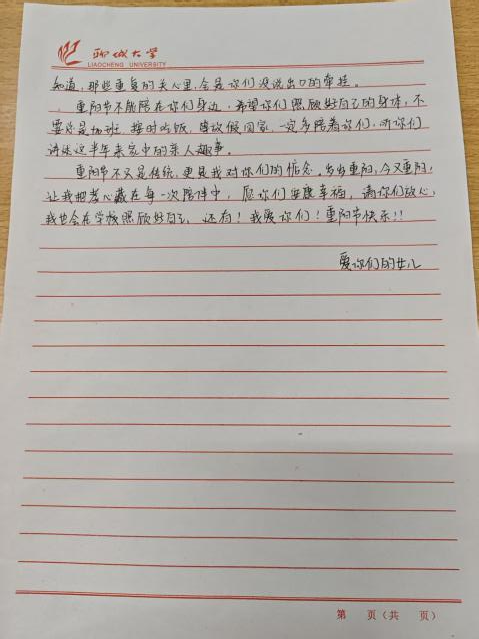 聊城大学
LIAOCHENG UNIVERSITY
知道，那些重复的关心里，全是你们没说出口的牵挂。
重阳节不能陪在你们身边，希望你们照顾好自己的身体，不
要总是加班，按时吃饭，等放假回家，一定多陪着你们，听你们
讲述这半年来家中的亲人趣事。
重阳节不仅是传统，更是我对你们的惦念。岁岁重阳，今又重阳，
让我把孝心藏在每一次陪伴中，愿你们安康幸福，请你们放心，
我也会在学校照顾好自己，还有！我爱你们！重阳节快乐!!
爱你们的女儿
第 页（共 页）